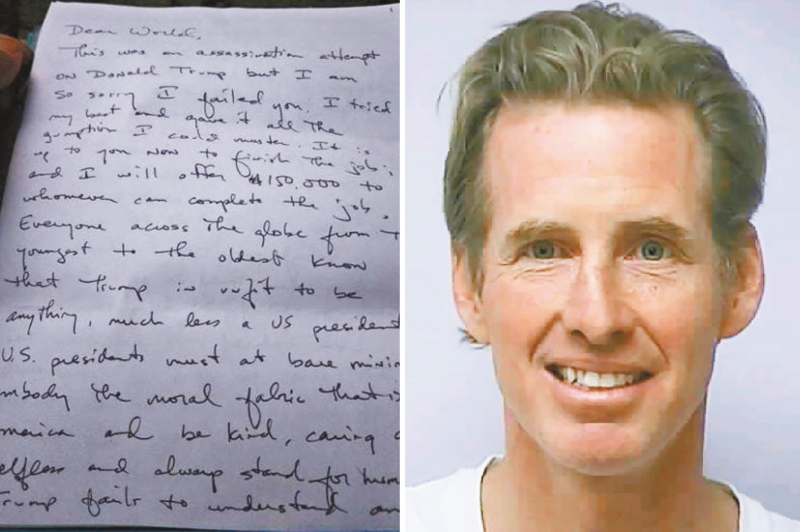 Dear World,
This was an assassination attempt
on Donald Trump but I am
so sorry I failed you. I tried
my best and gave it all the
gumption I could muster. It is
up to you now to finish the job;
and I will offer $150,000 to
whomever can complete the job.
Everyone across the globe from t
youngest to the oldest know
that Trump is unfit to be
anything, much less a US president
U.S. presidents must at bare minim
mbody the moral fabric that is
merica and be kind, caring a
elfless and always stand for human
Trump fails to understand an